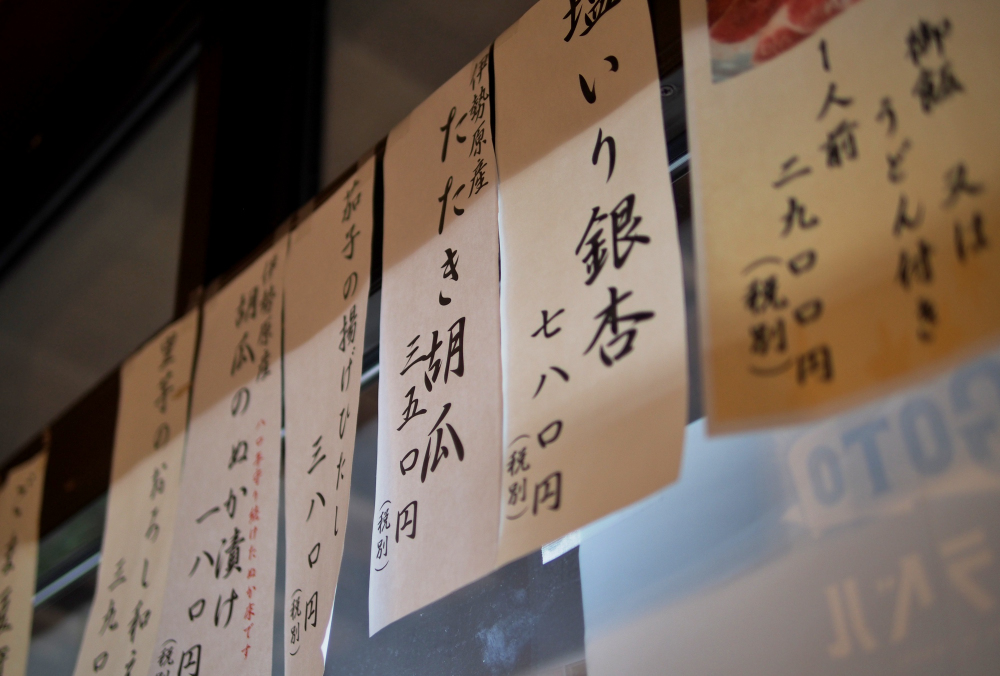 御飯 又は
うどん付き
1人前
二九〇〇円
(税別)
塩いり銀杏
七八〇円
(税別)
伊勢原産
たたき胡瓜
三五〇円
(税別)
茄子の揚げびたし
三八〇円
(税別)
伊勢原産
胡瓜のぬか漬け
一八〇円
(税別)
里芋のおろし和え
三九〇
ごま豆腐
GOTO
ラベル